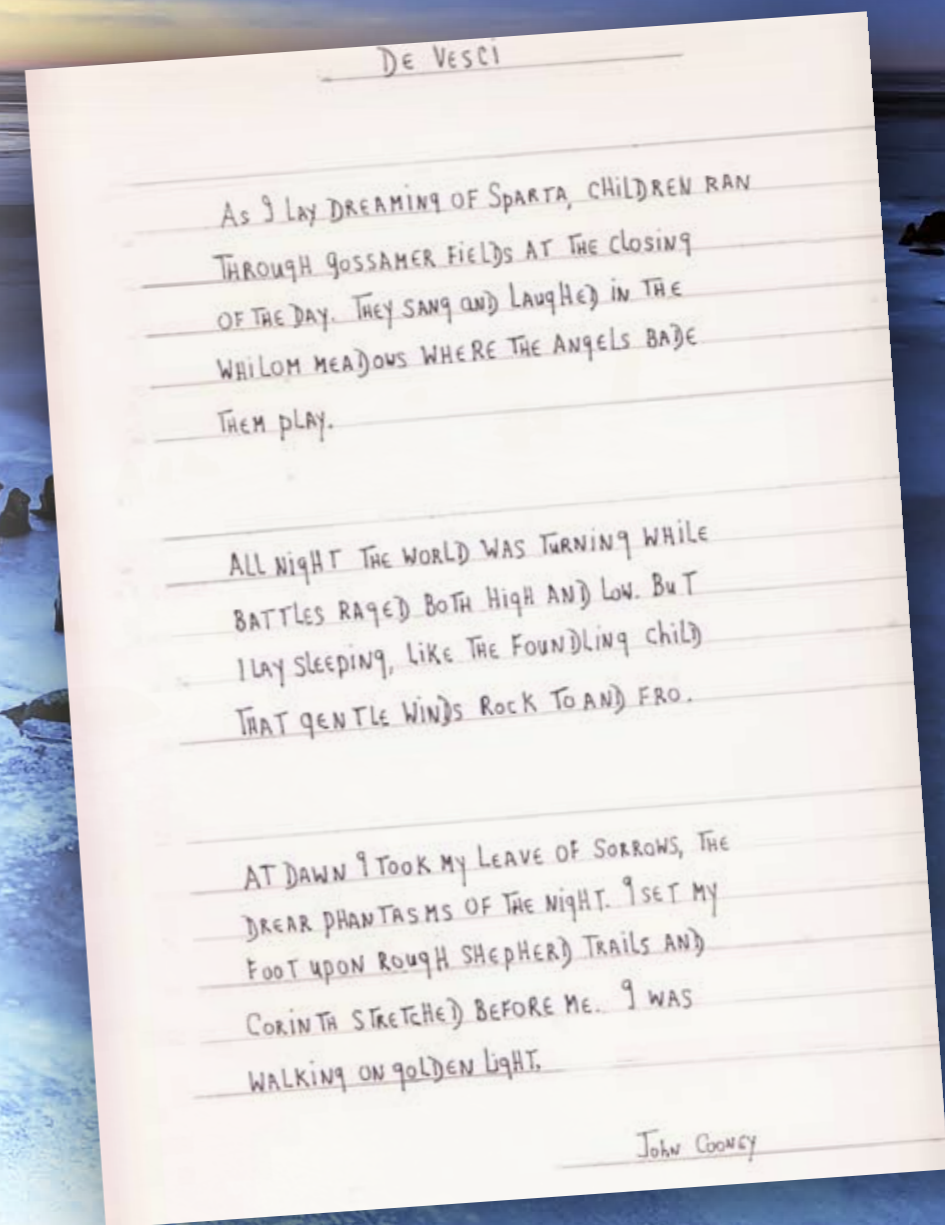 De Vesci
As I lay dreaming of Sparta, children ran
through gossamer fields at the closing
of the day. They sang and laughed in the
whilom meadows where the angels bade
them play.
All night the world was turning while
battles raged both high and low. But
I lay sleeping, like the foundling child
that gentle winds rock to and fro.
At dawn I took my leave of sorrows, the
drear phantasms of the night. I set my
foot upon rough shepherd trails and
Corinth stretched before me. I was
walking on golden light.
John Cooney